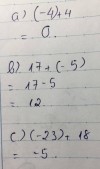 a) (-4)+4
= 0.
b) 17+(-5)
= 17-5
= 12.
c) (-23)+18
= -5.